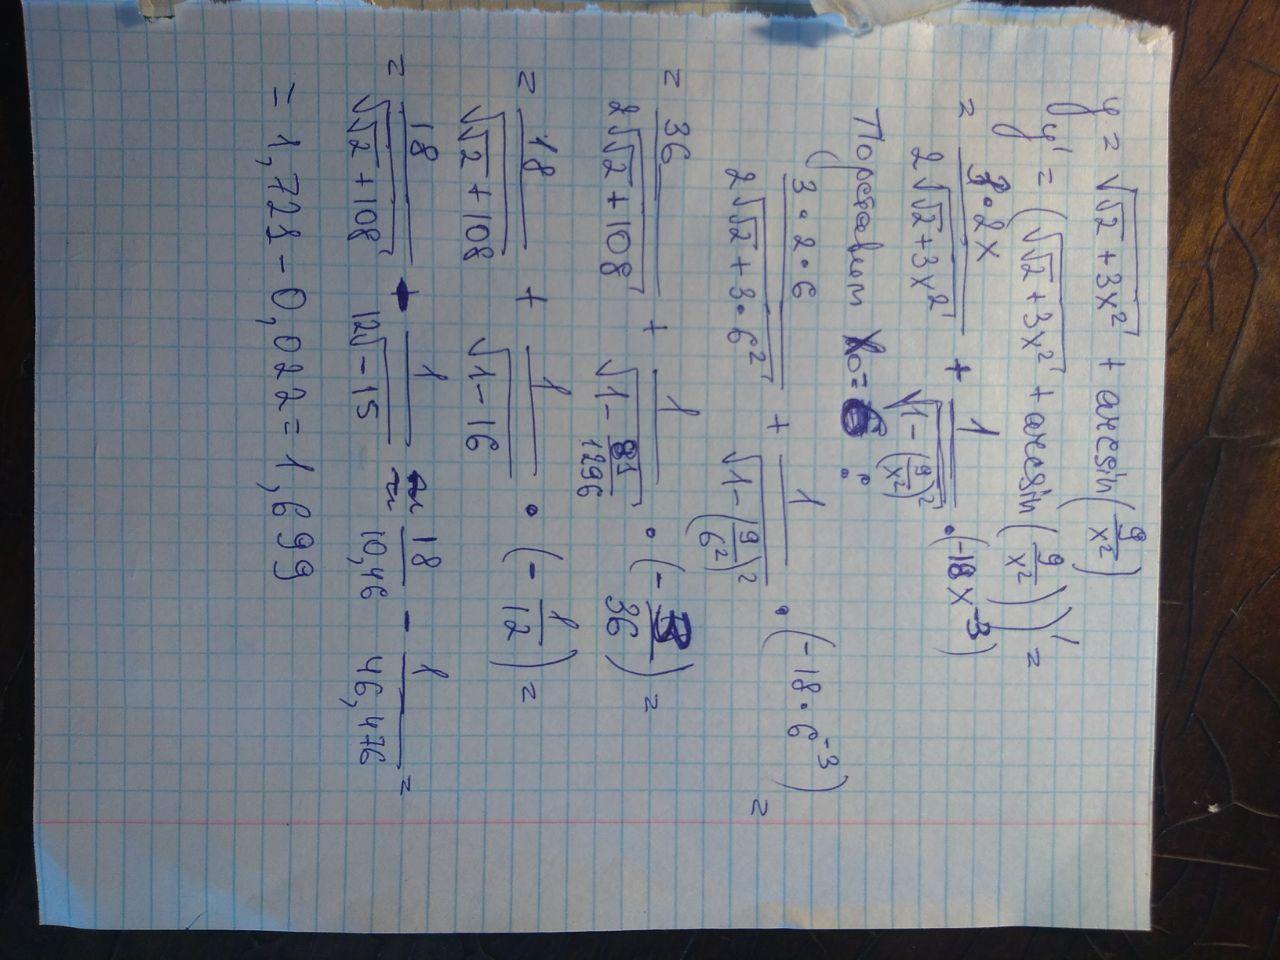 y = √(√2 + 3x²) + arcsin(9/x²)
y' = (√(√2 + 3x²) + arcsin(9/x²))' =
= 3·2x/(2√(√2 + 3x²)) + 1/√(1 − (9/x²)²) · (−18x⁻³)
Подставим x₀ = 6 :
3·2·6/(2√(√2 + 3·6²)) + 1/√(1 − (9/6²)²) · (−18·6⁻³) =
= 36/(2√(√2 + 108)) + 1/√(1 − 81/1296) · (−3/36) =
= 18/√(√2 + 108) + 1/√(1 − 16) · (−1/12) =
= 18/√(√2 + 108) + 1/(12√−15) ≈ 18/10,46 − 1/46,476 =
= 1,721 − 0,022 = 1,699